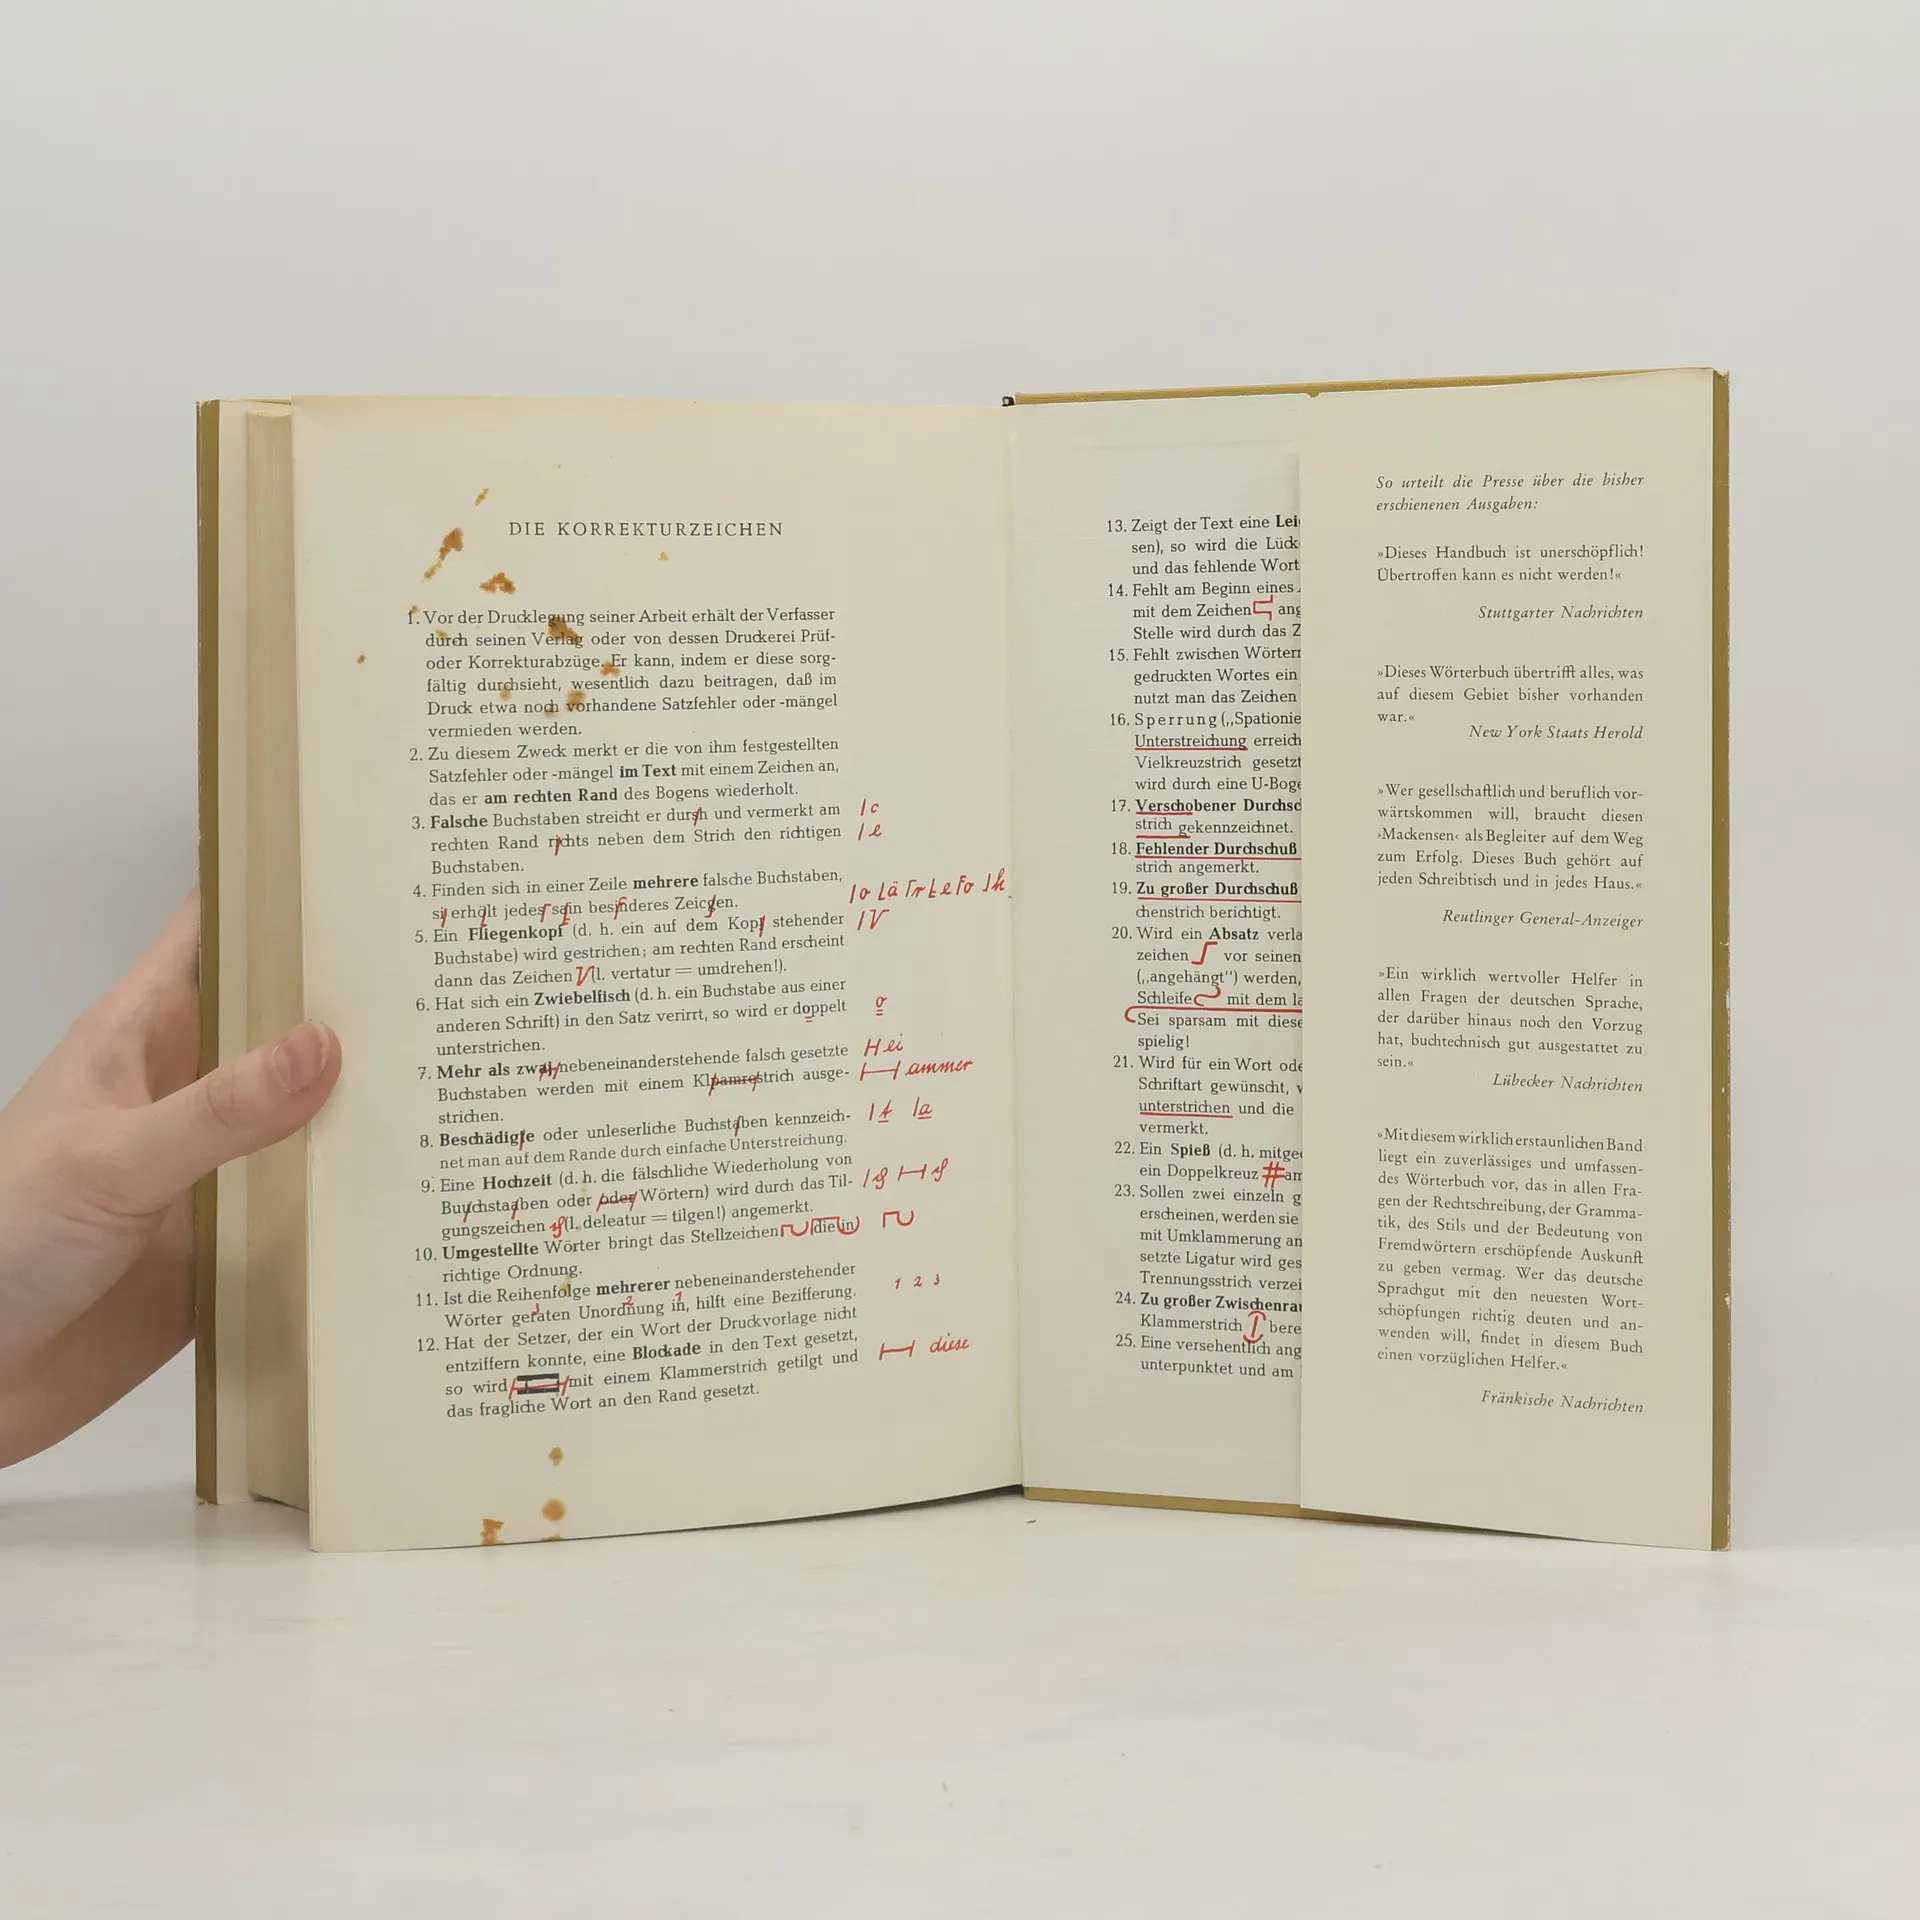 DIE KORREKTURZEICHEN
1. Vor der Drucklegung seiner Arbeit erhält der Verfasser
durch seinen Verlag oder von dessen Druckerei Prüf-
oder Korrekturabzüge. Er kann, indem er diese sorg-
fältig durchsieht, wesentlich dazu beitragen, daß im
Druck etwa noch vorhandene Satzfehler oder -mängel
vermieden werden.
2. Zu diesem Zweck merkt er die von ihm festgestellten
Satzfehler oder -mängel im Text mit einem Zeichen an,
das er am rechten Rand des Bogens wiederholt.
3. Falsche Buchstaben streicht er dursh und vermerkt am | c
rechten Rand richts neben dem Strich den richtigen | e
Buchstaben.
4. Finden sich in einer Zeile mehrere falsche Buchstaben,
erhält jedes besinderes
5. Ein Fliegenkopf (d. h. ein auf dem Kopf stehender
Buchstabe) wird gestrichen; am rechten Rand erscheint
dann das Zeichen V (l. vertatur = umdrehen!).
6. Hat sich ein Zwiebelfisch (d. h. ein Buchstabe aus einer
anderen Schrift) in den Satz verirrt, so wird er doppelt o
unterstrichen.
7. Mehr als nebeneinanderstehende falsch gesetzte H ei
Buchstaben werden mit einem Klpamrestrich ausge- ammer
strichen.
8. Beschädigte oder unleserliche Buchstaben kennzeich- | t | a
net man auf dem Rande durch einfache Unterstreichung.
9. Eine Hochzeit (d. h. die fälschliche Wiederholung von
Wörtern) wird durch das Til-
gungszeichen (l. deleatur = tilgen!) angemerkt.
10. Umgestellte Wörter bringt das Stellzeichen die in
richtige Ordnung.
11. Ist die Reihenfolge mehrerer nebeneinanderstehender 1 2 3
Wörter geraten Unordnung in, hilft eine Bezifferung.
3 2 1
12. Hat der Setzer, der ein Wort der Druckvorlage nicht
entziffern konnte, eine Blockade in den Text gesetzt, diese
so wird mit einem Klammerstrich getilgt und
das fragliche Wort an den Rand gesetzt.
13. Zeigt der Text eine
sen), so wird die
und das fehlende Wort
14. Fehlt am Beginn eines
mit dem Zeichen
Stelle wird durch das
15. Fehlt zwischen
gedruckten Wortes ein
nutzt man das Zeichen
16. Sperrung
Unterstreichung
Vielkreuzstrich
wird durch eine
17. Verschobener
strich gekennzeichnet.
18. Fehlender Durchschuß
strich angemerkt.
19. Zu großer Durchschuß
chenstrich berichtigt.
20. Wird ein Absatz
zeichen vor seinen
(„angehängt“) werden,
Schleife mit dem
Sei sparsam mit
spielig!
21. Wird für ein Wort
Schriftart gewünscht,
unterstrichen und die
vermerkt.
22. Ein Spieß (d. h.
ein Doppelkreuz #
23. Sollen zwei einzeln
erscheinen, werden sie
mit Umklammerung
setzte Ligatur wird
Trennungsstrich
24. Zu großer
Klammerstrich
25. Eine versehentlich
unterpunktet und am
So urteilt die Presse über die bisher
erschienenen Ausgaben:
»Dieses Handbuch ist unerschöpflich!
Übertroffen kann es nicht werden!«
Stuttgarter Nachrichten
»Dieses Wörterbuch übertrifft alles, was
auf diesem Gebiet bisher vorhanden
war.«
New York Staats Herold
»Wer gesellschaftlich und beruflich vor-
wärtskommen will, braucht diesen
›Mackensen‹ als Begleiter auf dem Weg
zum Erfolg. Dieses Buch gehört auf
jeden Schreibtisch und in jedes Haus.«
Reutlinger General-Anzeiger
»Ein wirklich wertvoller Helfer in
allen Fragen der deutschen Sprache,
der darüber hinaus noch den Vorzug
hat, buchtechnisch gut ausgestattet zu
sein.«
Lübecker Nachrichten
»Mit diesem wirklich erstaunlichen Band
liegt ein zuverlässiges und umfassen-
des Wörterbuch vor, das in allen Fra-
gen der Rechtschreibung, der Gramma-
tik, des Stils und der Bedeutung von
Fremdwörtern erschöpfende Auskunft
zu geben vermag. Wer das deutsche
Sprachgut mit den neuesten Wort-
schöpfungen richtig deuten und an-
wenden will, findet in diesem Buch
einen vorzüglichen Helfer.«
Fränkische Nachrichten